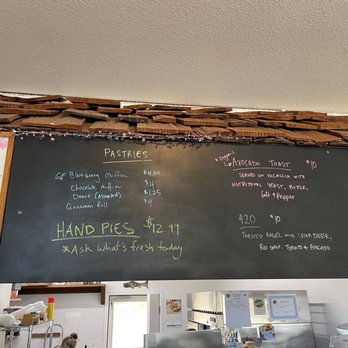 PASTRIES
GF Blackberry Muffin $4.50
Chocolate Muffin $4
Donut (assorted) $1.25
Cinnamon Roll $4
HAND PIES $12.97
*Ask What's fresh today
Organic
AVOCADO TOAST $10
SERVED ON FOCACCIA WITH
NUTRITIONAL YEAST, BUTTER,
SALT & PEPPER
420 $10
TOASTED BAGEL WITH CREAM CHEESE,
RED ONION, TOMATO & AVOCADO